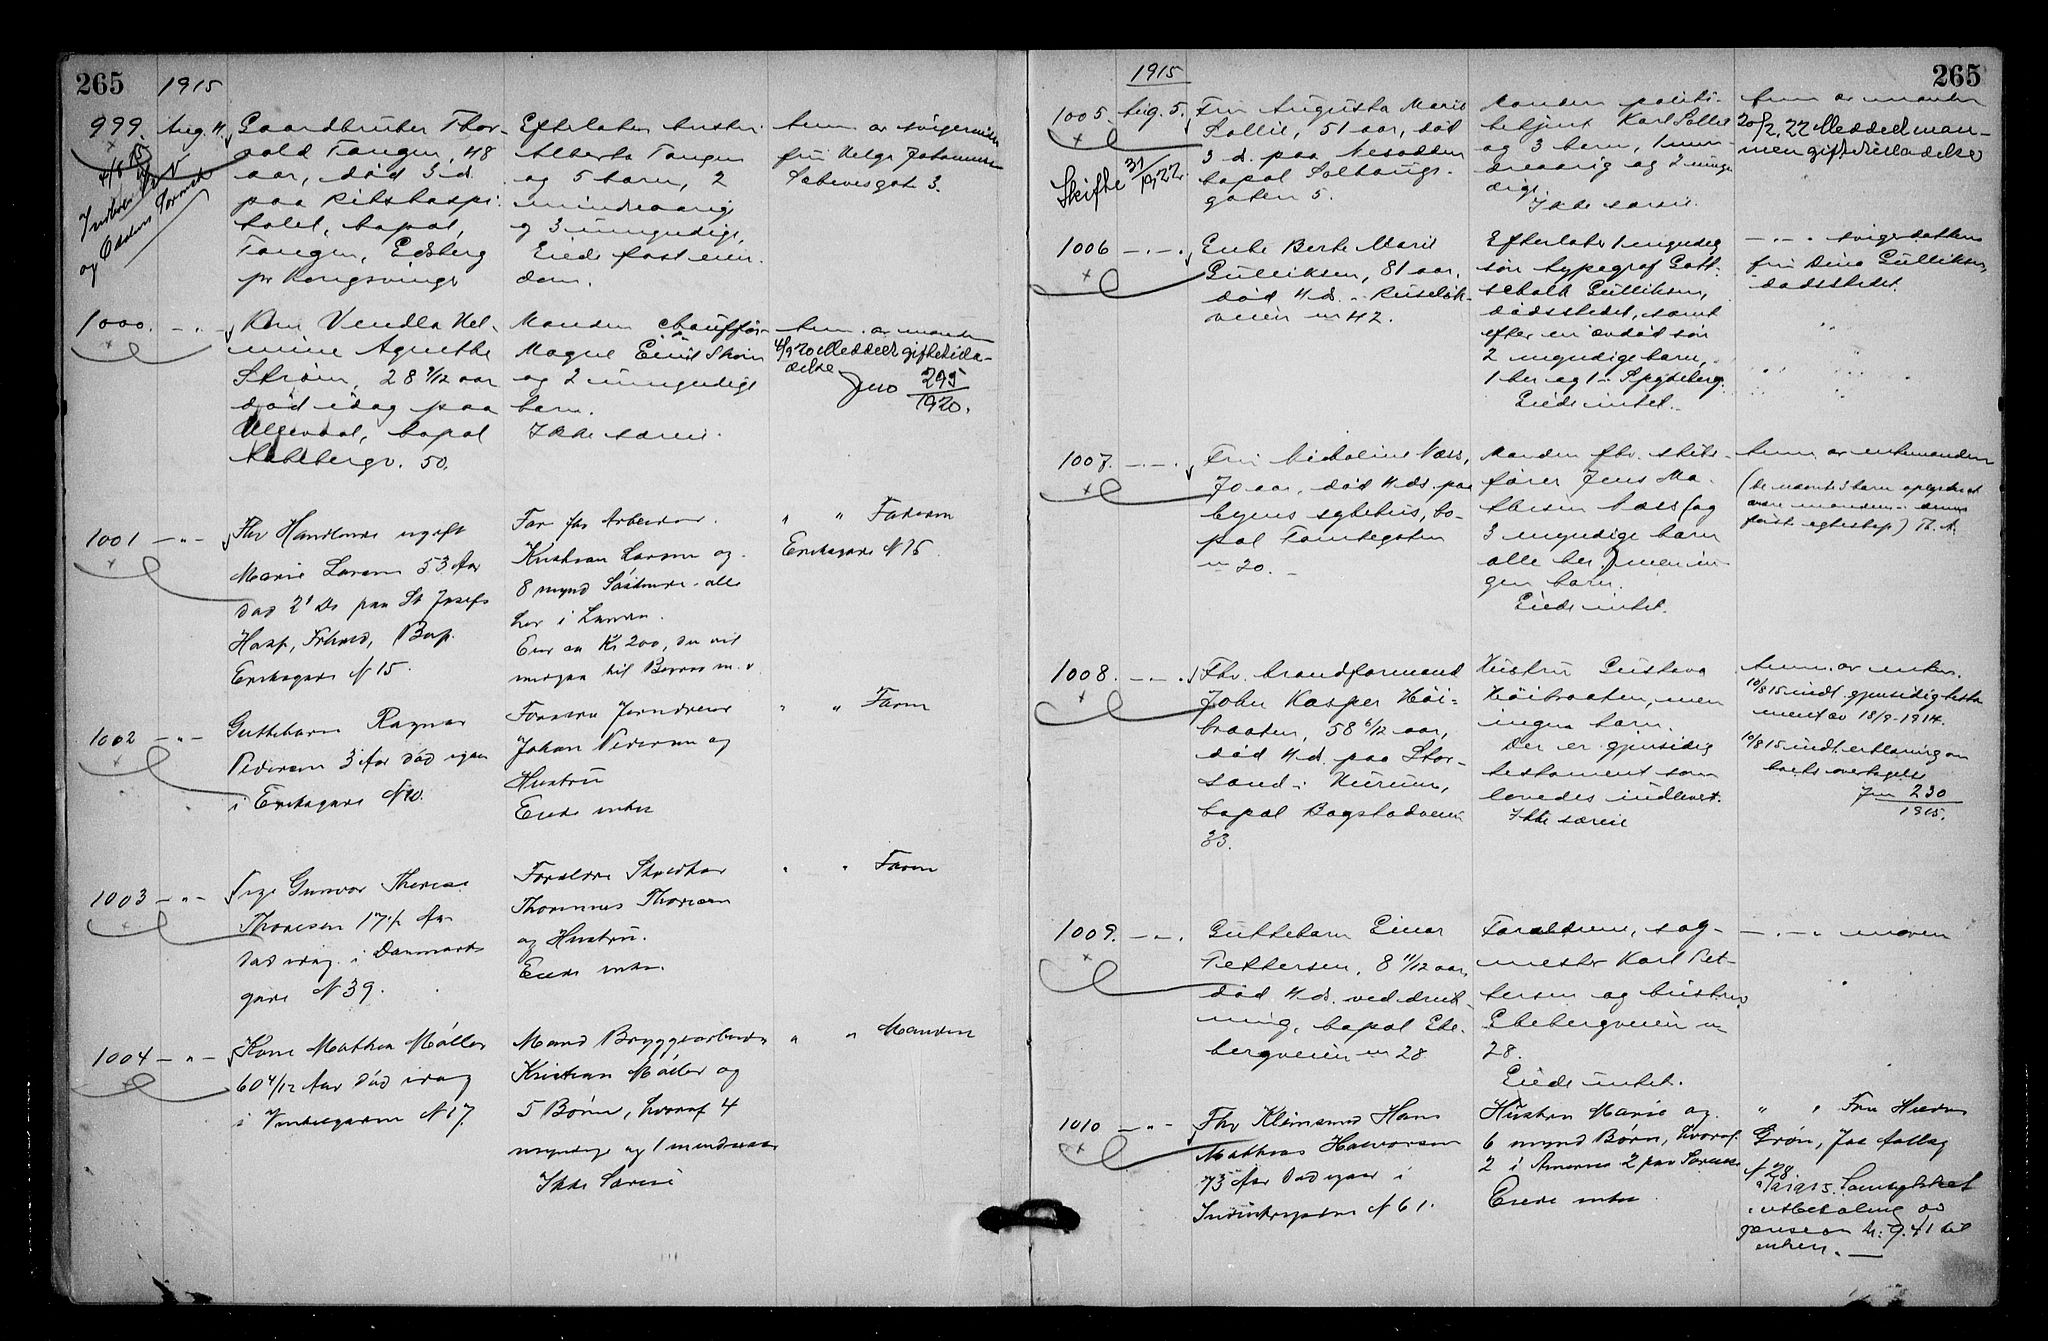 265
1915
999. Aug. 4. Gaardbruker Thor-
vald Tangen, 48
aar, død 3 d.
paa Rikshospi-
talet, bopæl,
Tangen, Eidsberg
pr Kongsvinger
Efterlater hustru
Alberte Tangen
og 5 barn, 2
mindreaarige
og 3 umyndige,
Eiede fast eien-
dom.
Anm. av svigerinden
fru Helga Johannesen
3.
1000. Kone Vendla Vel-
mine Agnethe
Strøm, 28 7/12 aar
død idag paa
Ullevaal, bopæl
50.
Manden chauffør
Magne Einar Strøm
og 2 umyndige
barn.
Ikke særeie.
Anm. av manden
4/9 20 Meddelt giftetilla-
delse
Jno 295
1920.
1001 Fhv Handlende ugift
Marie Larsen 53 Aar
død 2' ds paa St Josefs
Hosp, Bop.
Eriksgade N 15.
Far fhv Arbeider
Kristian Larsen og
8 mynd Sødskende alle
her i Landet.
Eier ca Kr 200, da vil
medgaa til Begrav m. v
" " Faderen
Eriksgade N 15.
1002 Guttebarn Ragnar
Pedersen 3 Aar død igaar
i Eriksgade N 10.
Forældre Jerndreier
Johan Pedersen og
Hustru
Eiede intet
" " Faren
1003 Pige Gunvor Therese
Thoresen 17 Aar
død idag i Danmarks
gade N 39.
Forældre Skredder
Thoresen
og Hustru.
Eiede intet.
" " Faren
1004 Kone Mathea Møller
60 4/12 Aar død idag
i N 17.
Mand Bryggearbeider
Kristian Møller og
5 Børn, hvoraf 4
myndige og 1 mindreaar
Ikke Særeie
" " Manden
1915
265
1005. Aug. 5. Fru Augusta Marie
Sollie, 51 aar, død
3 d. paa Nesodden
bopæl Solhaugs-
gaten 5.
Skifte 31/10, 22.
Manden politi-
betjent Karl Sollie
og 3 barn, 1 min-
dreaarig og 2 umyn-
dige.
Ikke særeie.
Anm. av manden
20/2, 22 Meddelt man-
nen giftetilladelse
1006 Enke Berte Marie
Gulliksen, 81 aar,
død 4 ds. i Ruseløk-
veien nr 42.
Efterlater 1 myndig
søn typograf Gott-
schalk Gulliksen,
dødsstedet, samt
efter en avdød søn
2 myndige barn,
1 her og 1 i Spydeberg.
Eiede intet.
" svigerdatteren
fru Dina Gulliksen,
dødsstedet.
1007. Fru Nicoline Næss,
70 aar, død 4 ds. paa
byens sykehus, bo-
pæl Tomtegaten
nr 20.
Manden fhv. skibs-
fører Jens Ma-
thisen Næss (og
3 myndige barn
alle her) men in-
gen barn.
Eiede intet.
Anm. av enkemanden
(De nævnte 3 barn oplystes at
være mandens i dennes
første egteskap) Th. A.
1008. Fhv. brandformand
John Kasper Høi-
braaten, 58 6/12 aar,
død 4 d. paa Stor-
sand i Hurum,
bopæl Bogstadveien
33.
Hustru Gustava
Høibraaten, men
ingen barn.
Der er gjensidig
testament som
lovedes indlevert.
Ikke særeie
Anm. av enken.
10/8 15 indl. gjensidig testa-
ment av 18/9-1914.
10/8 15 indl. erklæring om
boets overtagelse
Jno 230
1915.
1009. Guttebarn Einar
Pettersen, 8 11/12 aar,
død 4 ds. ved druk-
ning, bopæl Eke-
bergveien nr 28
Forældrene, sag-
mester Karl Pet-
tersen og hustru,
Ekebergveien nr
28.
Eiede intet.
" moren
1010 Fhv Kleinsmed Hans
Mathias Halvorsen
73 Aar død igaar i
Industrigaden N 61.
Hustru Marie og
6 mynd Børn, hvoraf
2 i Amerika 2 paa
Eiede intet
" " Fru Hulda
Grøn,
N 28.
Samtykket
i utbetaling av
pension kr. 9.41 til
enken.